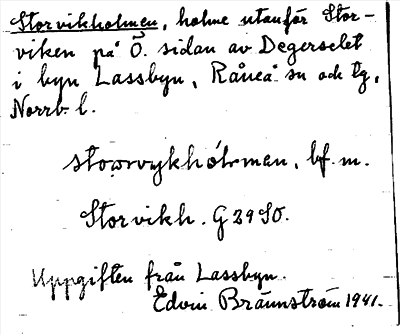 Storvikholmen, holme utanför Stor-
viken på Ö. sidan av Degerselet
i byn Lassbyn, Råneå sn och tg,
Norrb. l.
bf. m.
Storvikh. G 29 SO.
Uppgiften från Lassbyn.
Edvin Brännström 1941.